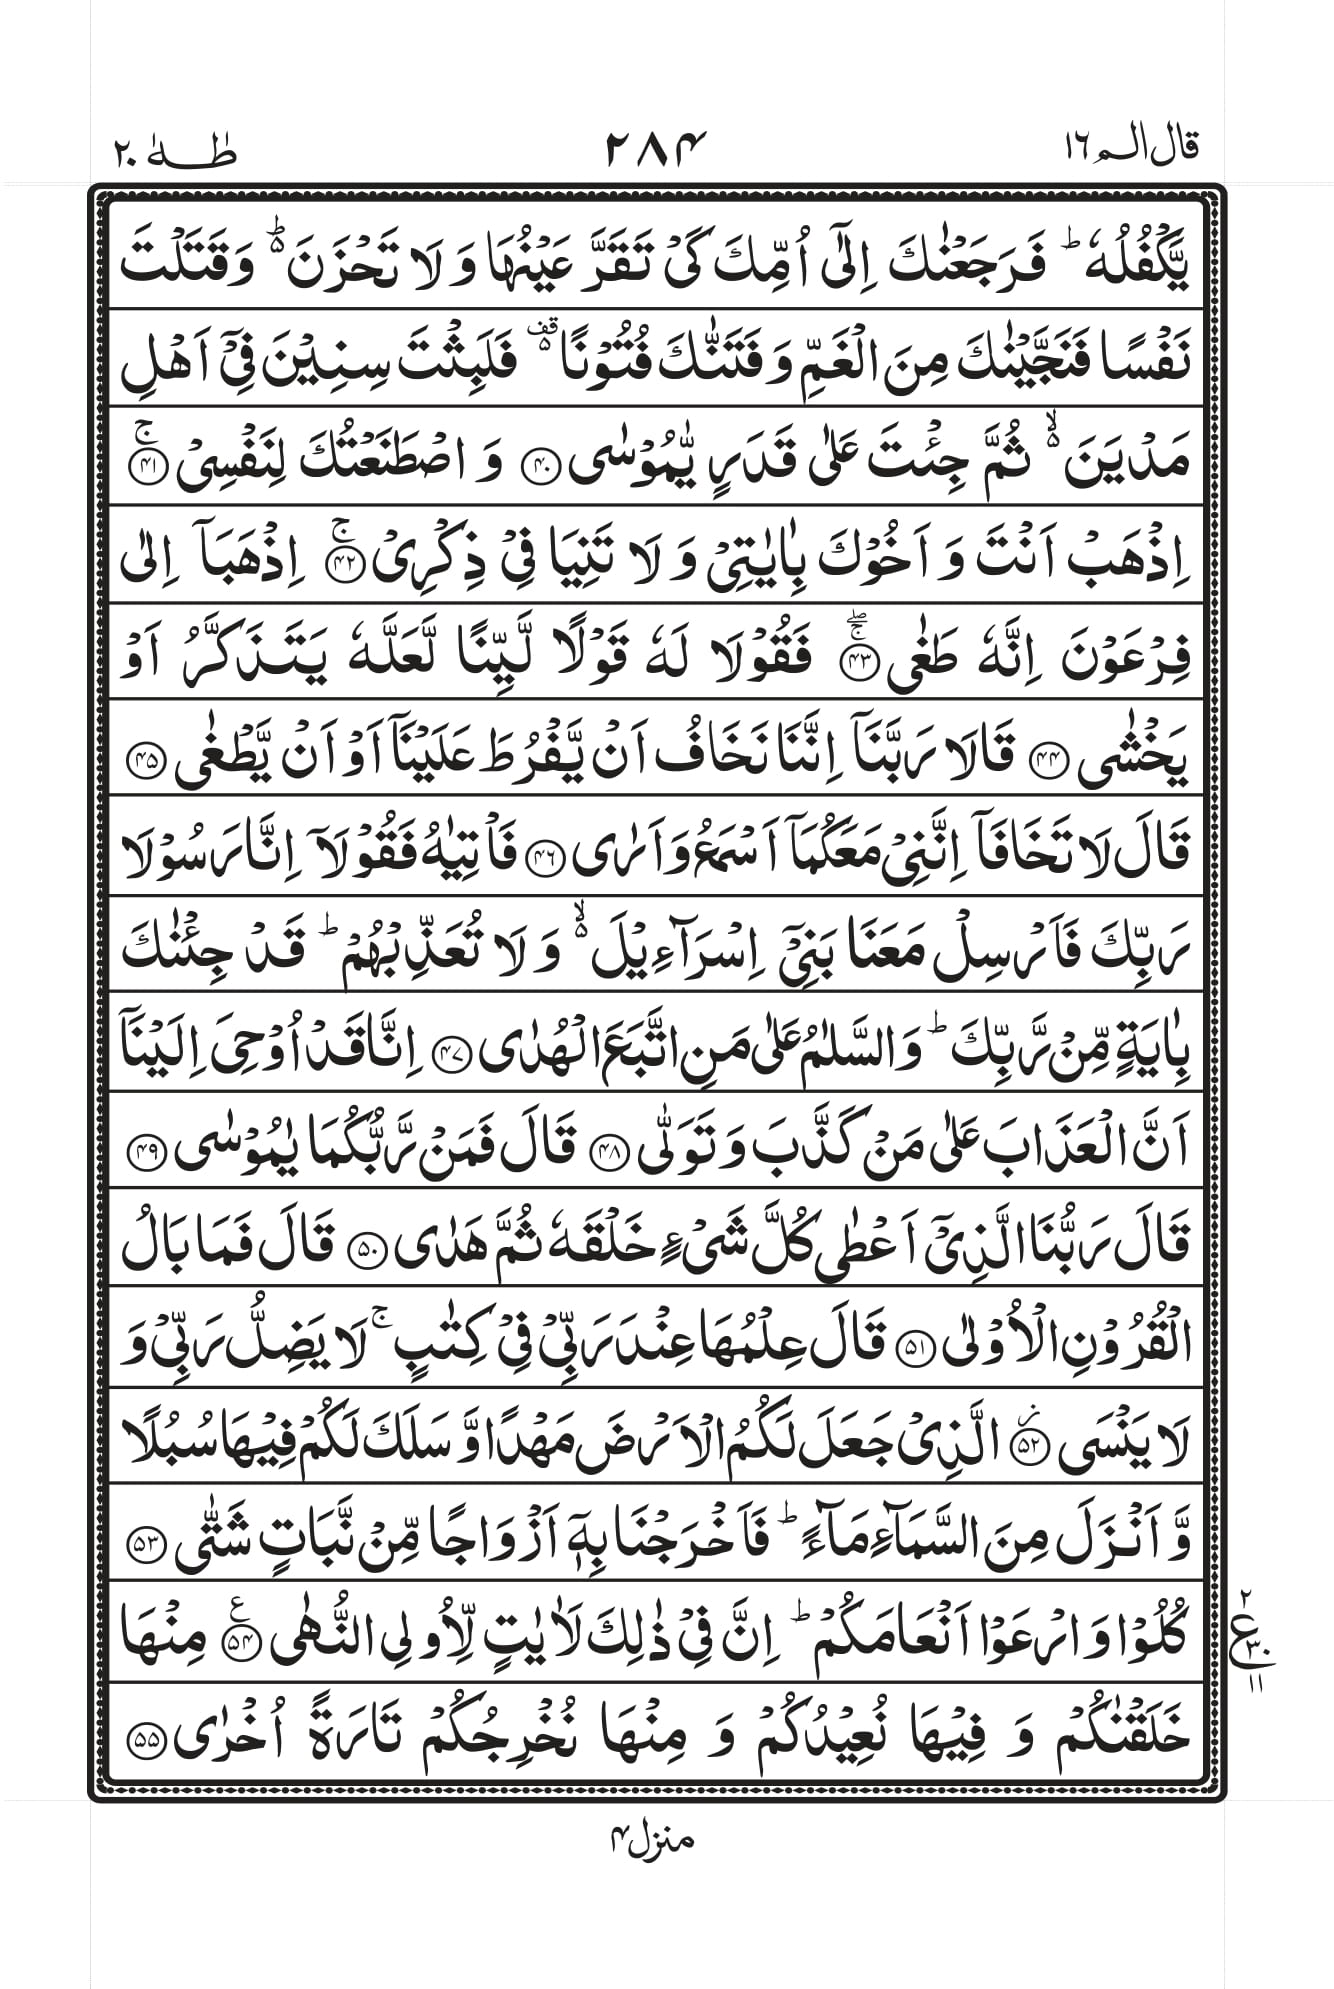 قال الم ۱٦
۲۸۴
طٰهٰ ۲۰
يَّكْفُلُهٗ ؕ فَرَجَعْنٰكَ اِلٰٓى اُمِّكَ كَىْ تَقَرَّ عَيْنُهَا وَ لَا تَحْزَنَ ۵ؕ وَ قَتَلْتَ
نَفْسًا فَنَجَّيْنٰكَ مِنَ الْغَمِّ وَ فَتَنّٰكَ فُتُوْنًا ۵قف فَلَبِثْتَ سِنِيْنَ فِىْٓ اَهْلِ
مَدْيَنَ ۵ۙ ثُمَّ جِئْتَ عَلٰى قَدَرٍ يّٰمُوْسٰى ﴿۴۰﴾ وَ اصْطَنَعْتُكَ لِنَفْسِىْ ﴿۴۱﴾ۚ
اِذْهَبْ اَنْتَ وَ اَخُوْكَ بِاٰيٰتِىْ وَ لَا تَنِيَا فِىْ ذِكْرِىْ ﴿۴۲﴾ۚ اِذْهَبَآ اِلٰى
فِرْعَوْنَ اِنَّهٗ طَغٰى ﴿۴۳﴾ۚۖ فَقُوْلَا لَهٗ قَوْلًا لَّيِّنًا لَّعَلَّهٗ يَتَذَكَّرُ اَوْ
يَخْشٰى ﴿۴۴﴾ قَالَا رَبَّنَآ اِنَّنَا نَخَافُ اَنْ يَّفْرُطَ عَلَيْنَآ اَوْ اَنْ يَّطْغٰى ﴿۴۵﴾
قَالَ لَا تَخَافَآ اِنَّنِىْ مَعَكُمَآ اَسْمَعُ وَ اَرٰى ﴿۴۶﴾ فَاْتِيٰهُ فَقُوْلَآ اِنَّا رَسُوْلَا
رَبِّكَ فَاَرْسِلْ مَعَنَا بَنِىْٓ اِسْرَآءِيْلَ ۵ۙ وَ لَا تُعَذِّبْهُمْ ؕ قَدْ جِئْنٰكَ
بِاٰيَةٍ مِّنْ رَّبِّكَ ؕ وَ السَّلٰمُ عَلٰى مَنِ اتَّبَعَ الْهُدٰى ﴿۴۷﴾ اِنَّا قَدْ اُوْحِىَ اِلَيْنَآ
اَنَّ الْعَذَابَ عَلٰى مَنْ كَذَّبَ وَ تَوَلّٰى ﴿۴۸﴾ قَالَ فَمَنْ رَّبُّكُمَا يٰمُوْسٰى ﴿۴۹﴾
قَالَ رَبُّنَا الَّذِىْٓ اَعْطٰى كُلَّ شَىْءٍ خَلْقَهٗ ثُمَّ هَدٰى ﴿۵۰﴾ قَالَ فَمَا بَالُ
الْقُرُوْنِ الْاُوْلٰى ﴿۵۱﴾ قَالَ عِلْمُهَا عِنْدَ رَبِّىْ فِىْ كِتٰبٍ ۚ لَا يَضِلُّ رَبِّىْ وَ
لَا يَنْسَى ﴿۵۲﴾ؗ الَّذِىْ جَعَلَ لَكُمُ الْاَرْضَ مَهْدًا وَّ سَلَكَ لَكُمْ فِيْهَا سُبُلًا
وَّ اَنْزَلَ مِنَ السَّمَآءِ مَآءً ؕ فَاَخْرَجْنَا بِهٖٓ اَزْوَاجًا مِّنْ نَّبَاتٍ شَتّٰى ﴿۵۳﴾
كُلُوْا وَ ارْعَوْا اَنْعَامَكُمْ ؕ اِنَّ فِىْ ذٰلِكَ لَاٰيٰتٍ لِّاُولِى النُّهٰى ﴿۵۴﴾ع مِنْهَا
۲
ع ۳۰
۱۱
خَلَقْنٰكُمْ وَ فِيْهَا نُعِيْدُكُمْ وَ مِنْهَا نُخْرِجُكُمْ تَارَةً اُخْرٰى ﴿۵۵﴾
منزل ۴